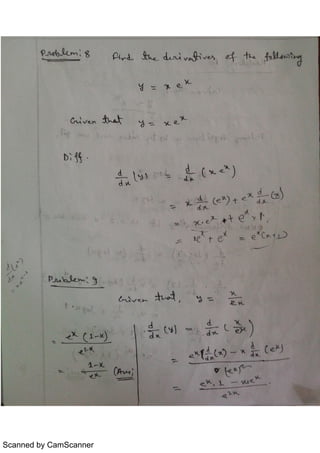 Problem: 8 Find the derivatives of the following
y = x e^x
Given that y = x e^x
Diff.
d/dx (y) = d/dx (x e^x)
= x d/dx (e^x) + e^x d/dx (x)
= x.e^x + e^x × 1
= xe^x + e^x = e^x(x+1)
Problem: 9
Given that, y = x/e^x
d/dx (y) = d/dx (x/e^x)
= e^x d/dx (x) - x d/dx (e^x) / (e^x)^2
= e^x . 1 - xe^x / e^2x
= e^x (1-x) / e^2x
= 1-x / e^x (Ans)
Scanned by CamScanner